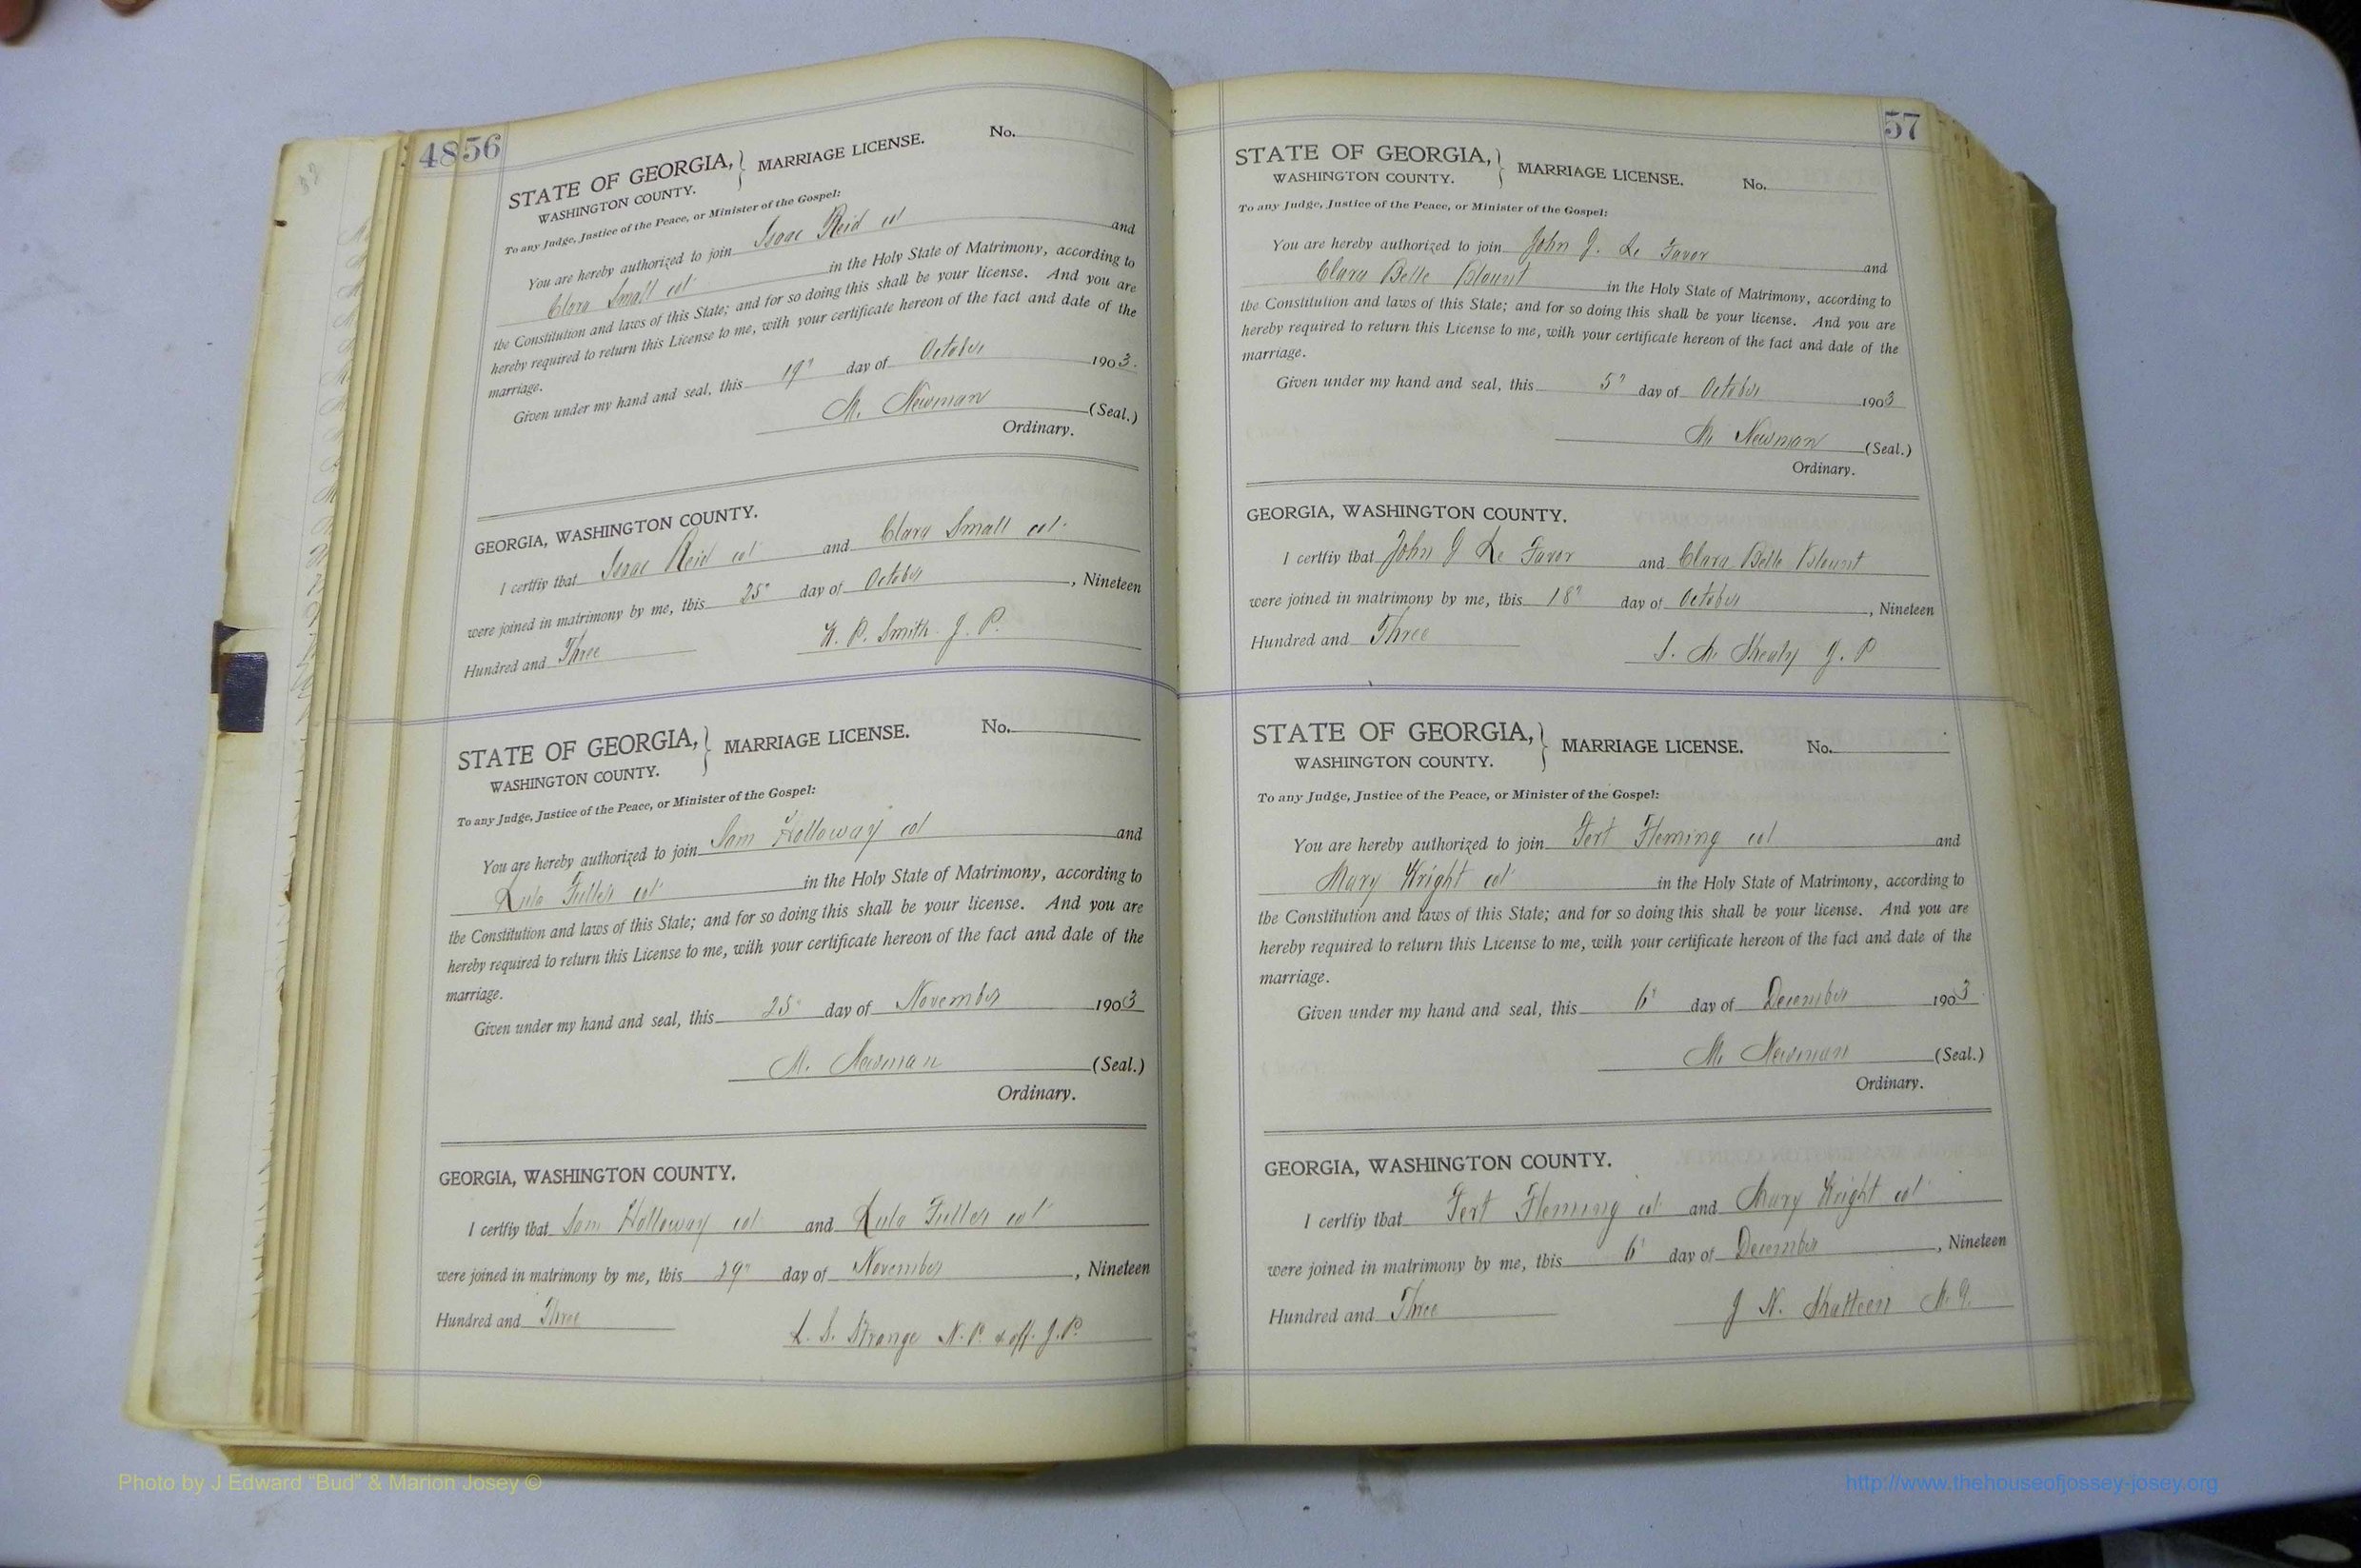 48 56
STATE OF GEORGIA, } MARRIAGE LICENSE. No.
WASHINGTON COUNTY.
To any Judge, Justice of the Peace, or Minister of the Gospel:
You are hereby authorized to join Isaac Reid col and
Clara Small col in the Holy State of Matrimony, according to
the Constitution and laws of this State; and for so doing this shall be your license. And you are
hereby required to return this License to me, with your certificate hereon of the fact and date of the
marriage.
Given under my hand and seal, this 19" day of October 1903.
M. Newman (Seal.)
Ordinary.
GEORGIA, WASHINGTON COUNTY.
I certfiy that Isaac Reid col and Clara Small col
were joined in matrimony by me, this 25" day of October, Nineteen
Hundred and Three
W. P. Smith J. P.
STATE OF GEORGIA, } MARRIAGE LICENSE. No.
WASHINGTON COUNTY.
To any Judge, Justice of the Peace, or Minister of the Gospel:
You are hereby authorized to join Sam Holloway col and
Lula Fuller col in the Holy State of Matrimony, according to
the Constitution and laws of this State; and for so doing this shall be your license. And you are
hereby required to return this License to me, with your certificate hereon of the fact and date of the
marriage.
Given under my hand and seal, this 25" day of November 1903
M. Newman (Seal.)
Ordinary.
GEORGIA, WASHINGTON COUNTY.
I certfiy that Sam Holloway col and Lula Fuller col
were joined in matrimony by me, this 29" day of November, Nineteen
Hundred and Three
L. S. Strange N. P. & off. J. P.
57
STATE OF GEORGIA, } MARRIAGE LICENSE. No.
WASHINGTON COUNTY.
To any Judge, Justice of the Peace, or Minister of the Gospel:
You are hereby authorized to join John J. Le Favor and
Clara Belle Blount in the Holy State of Matrimony, according to
the Constitution and laws of this State; and for so doing this shall be your license. And you are
hereby required to return this License to me, with your certificate hereon of the fact and date of the
marriage.
Given under my hand and seal, this 5" day of October 1903
M. Newman (Seal.)
Ordinary.
GEORGIA, WASHINGTON COUNTY.
I certfiy that John J Le Favor and Clara Belle Blount
were joined in matrimony by me, this 18" day of October, Nineteen
Hundred and Three
S. M. Shealy J. P
STATE OF GEORGIA, } MARRIAGE LICENSE. No.
WASHINGTON COUNTY.
To any Judge, Justice of the Peace, or Minister of the Gospel:
You are hereby authorized to join Fort Fleming col and
Mary Wright col in the Holy State of Matrimony, according to
the Constitution and laws of this State; and for so doing this shall be your license. And you are
hereby required to return this License to me, with your certificate hereon of the fact and date of the
marriage.
Given under my hand and seal, this 6" day of December 1903
M. Newman (Seal.)
Ordinary.
GEORGIA, WASHINGTON COUNTY.
I certfiy that Fort Fleming col and Mary Wright col
were joined in matrimony by me, this 6" day of December, Nineteen
Hundred and Three
J N. Shatteen M. G.
Photo by J Edward "Bud" & Marion Josey ©
http://www.thehouseofjossey-josey.org